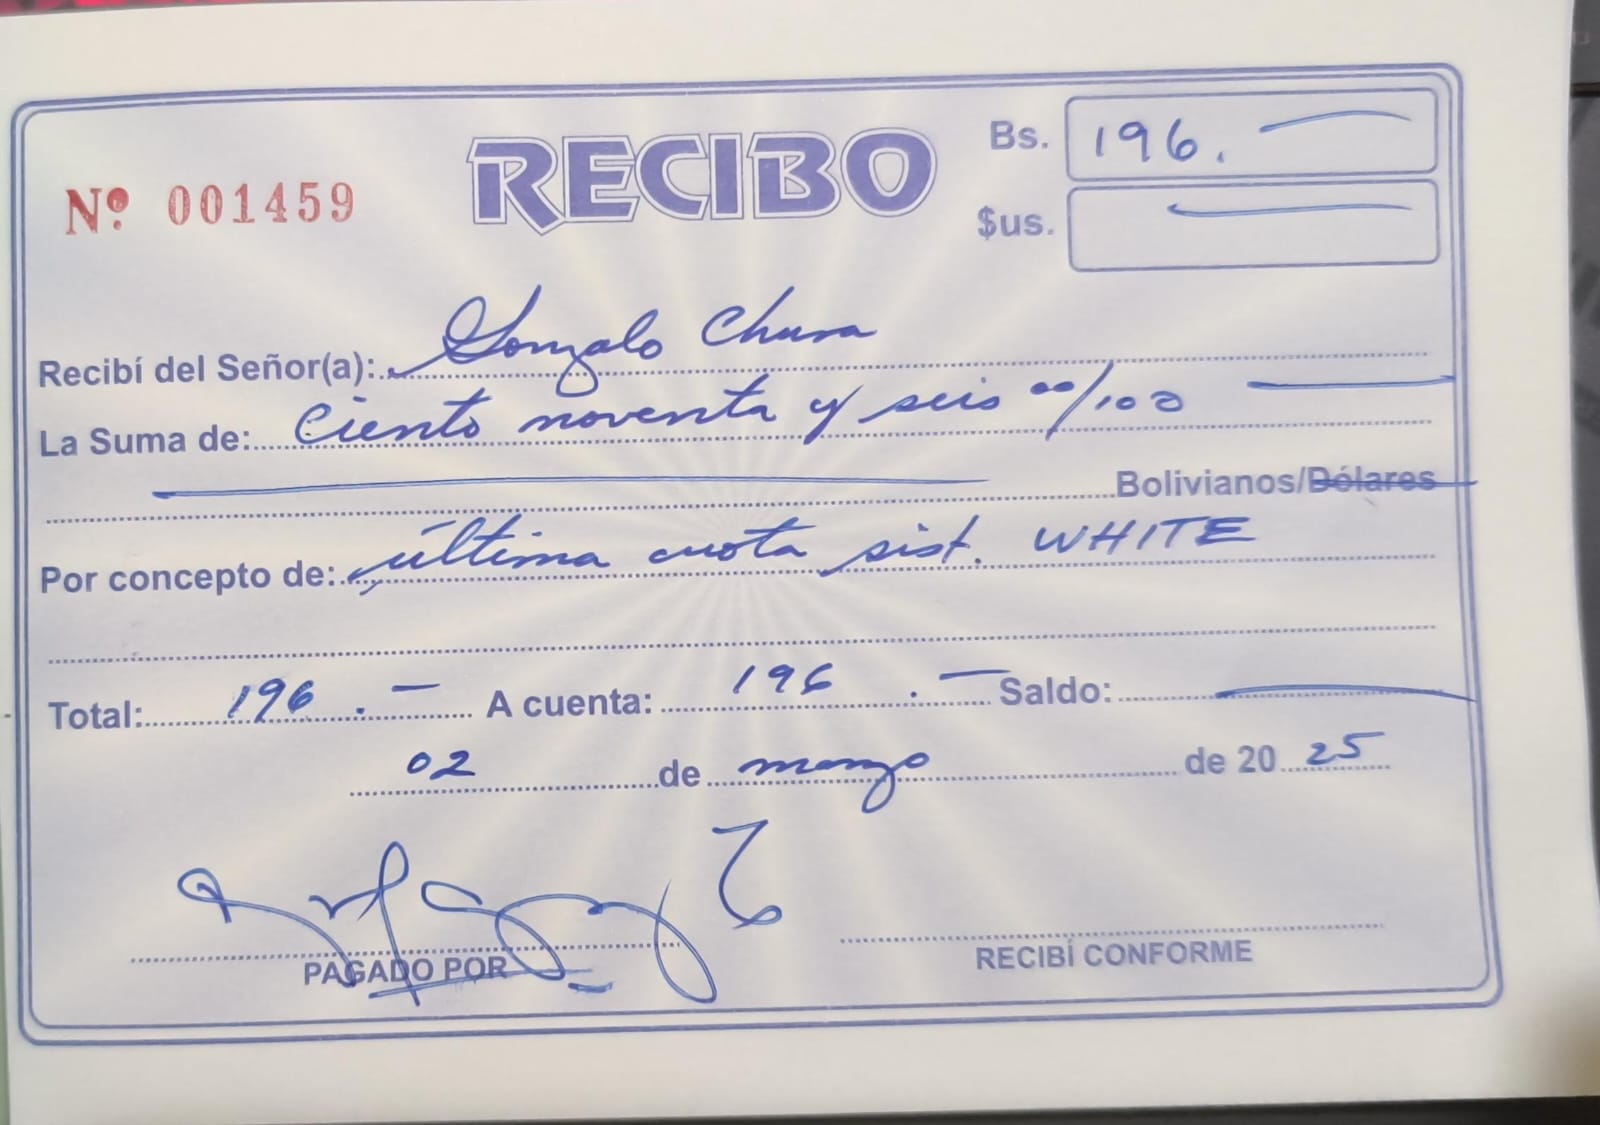 Nº 001459
RECIBO
Bs. 196. —
$us. —
Recibí del Señor(a): Gonzalo Chura
La Suma de: Ciento noventa y seis 00/100 —
— Bolivianos/Dólares
Por concepto de: última cuota sist. WHITE
Total: 196. — A cuenta: 196. — Saldo: —
02 de marzo de 2025
PAGADO POR
RECIBÍ CONFORME